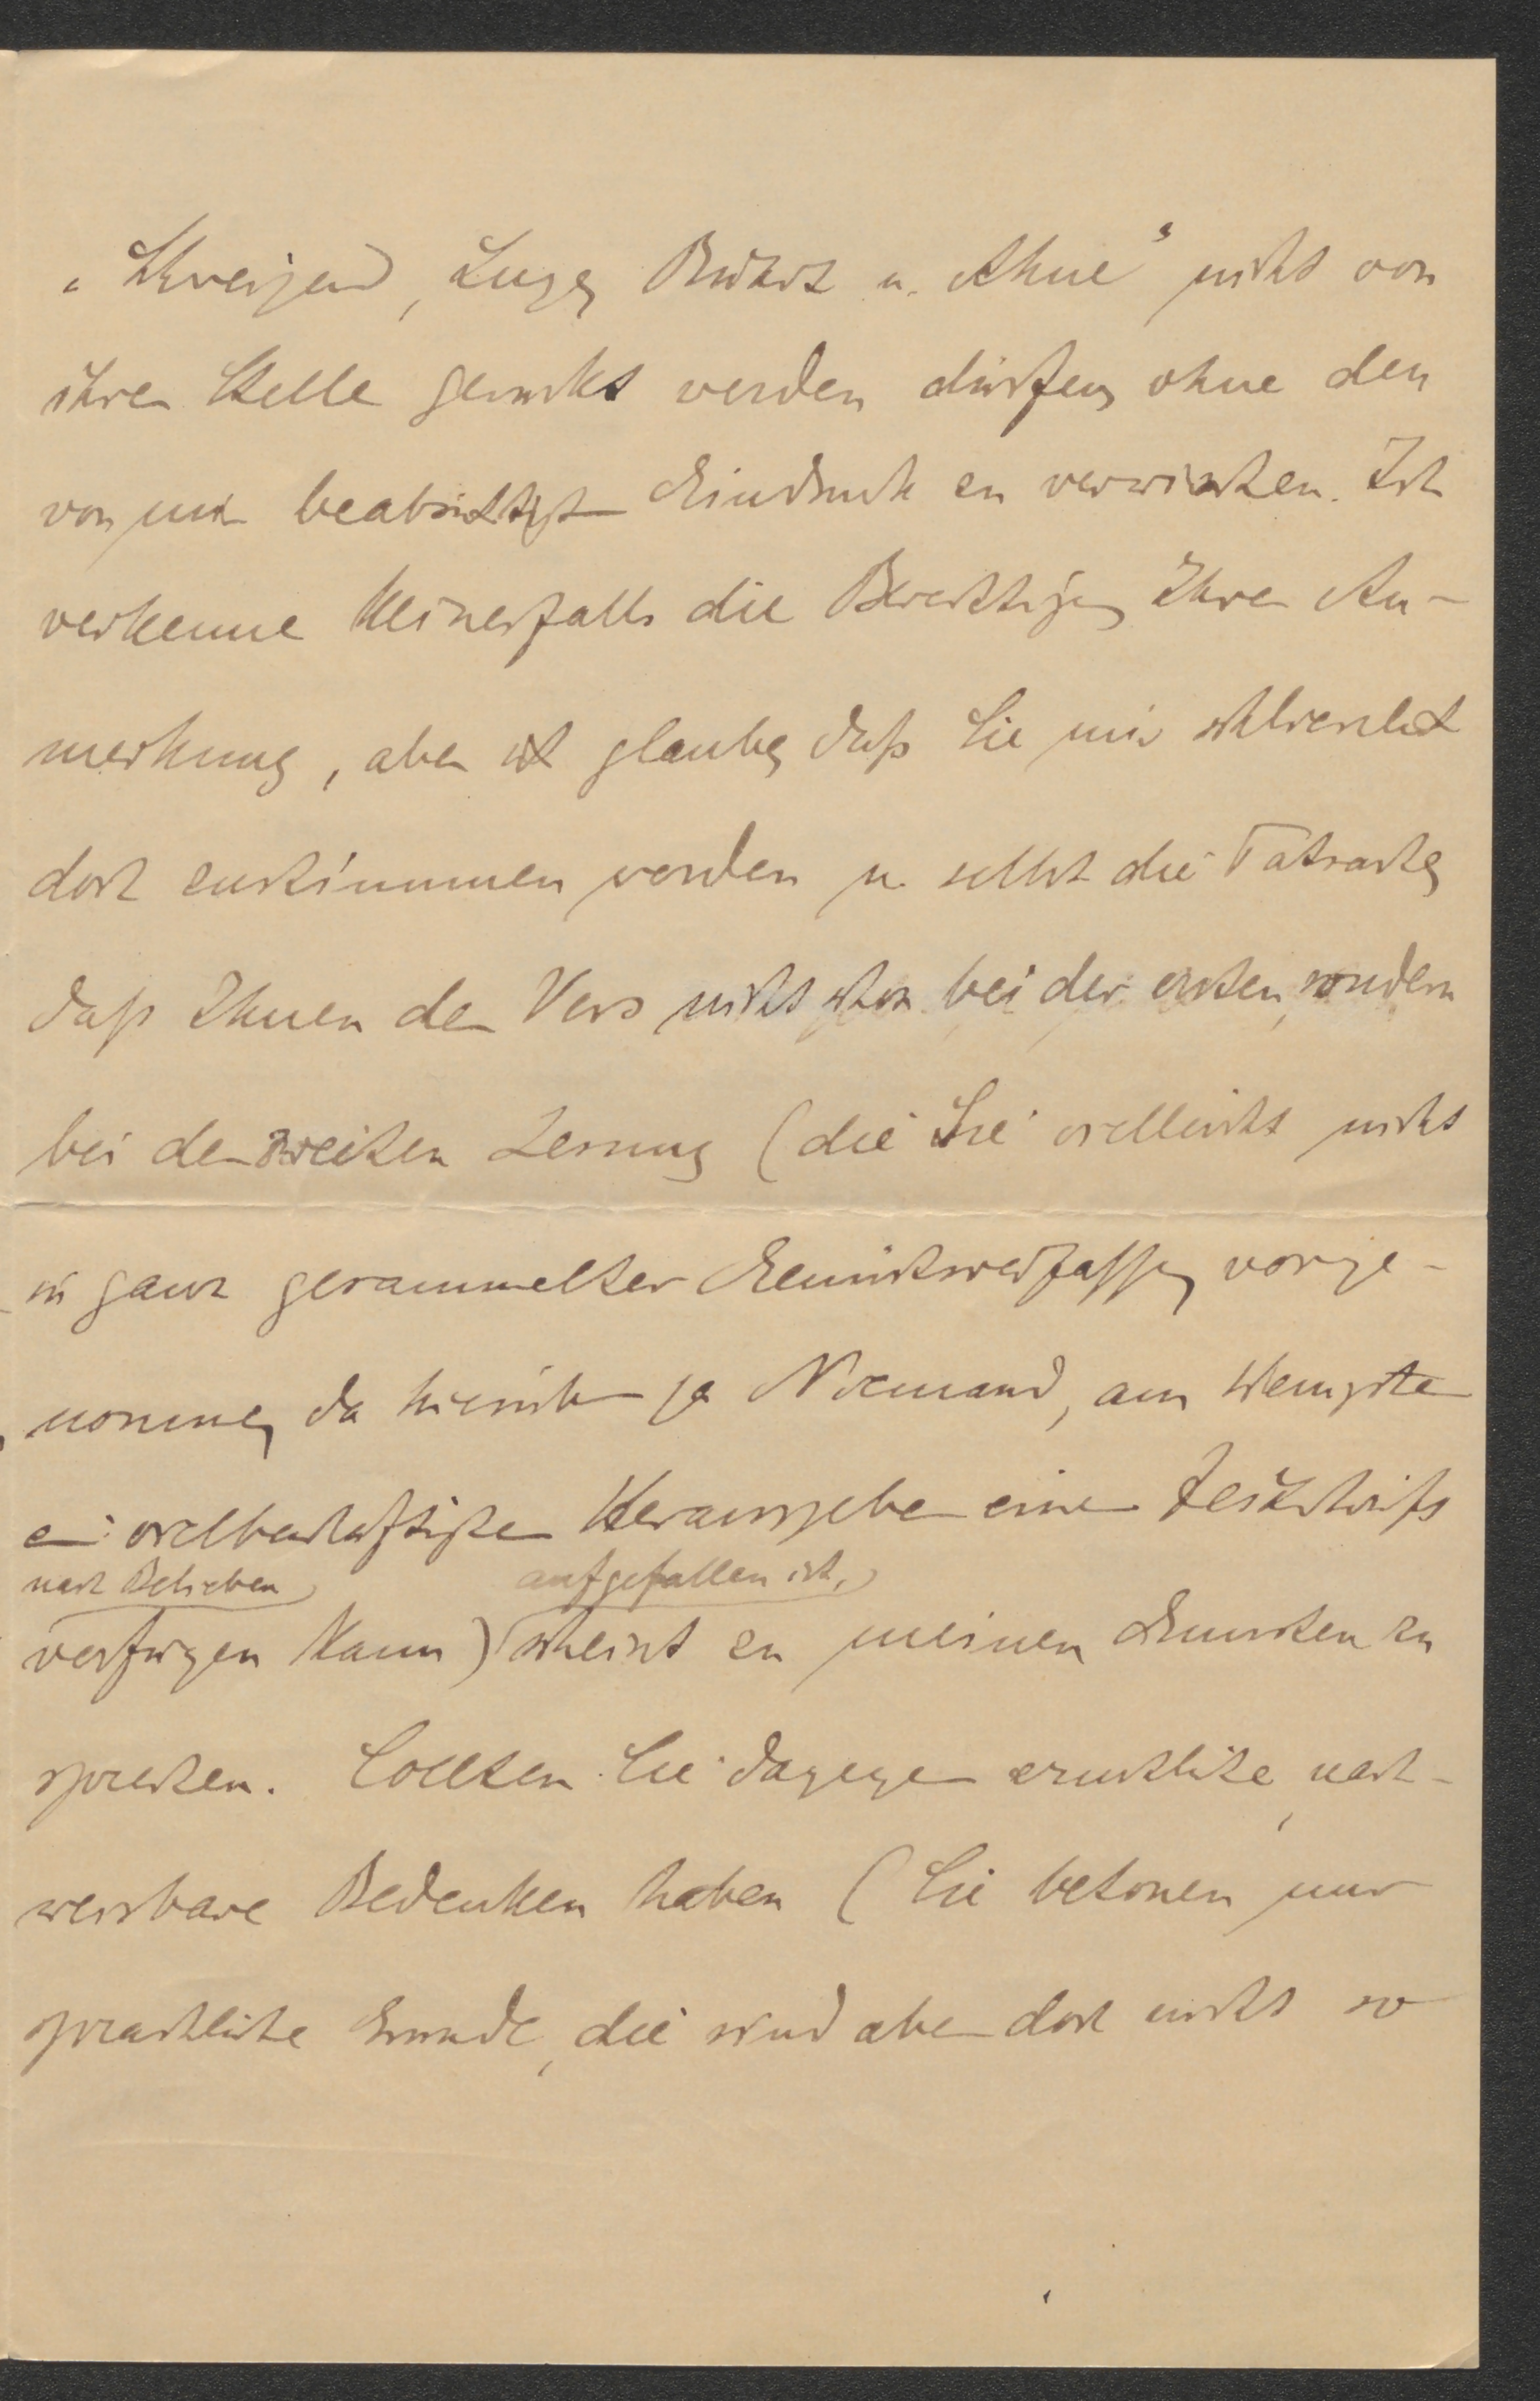 „Schweigend, Luzern, Bucht u. Ahne" nicht von
ihrer Stelle gerückt werden dürfen, ohne den
von mir beabsichtigt Eindruck zu verwischen. Ich
verkenne keinesfalls die Berechtigung Ihrer An-
merkung, aber ich glaube, daß Sie mir schliesslich
doch zustimmen werden u. selbst die Tatsache,
daß Ihnen der Vers nicht schon bei der ersten, sondern
bei der zweiten Lesung (die Sie vielleicht nicht
in ganz gesammelter Gemütsverfassung vorge-
nommen, da hierüber ja Niemand, am Wenigsten
ein vielbeschäftigter Herausgeber einer Zeitschrift
nach Belieben aufgefallen ist,
verfügen kann) scheint zu meinen Gunsten zu
sprechen. Sollten Sie dagegen ernstliche, nach-
weisbare Bedenken haben (Sie betonen nur
sprachliche Gründe, die sind aber doch nicht so